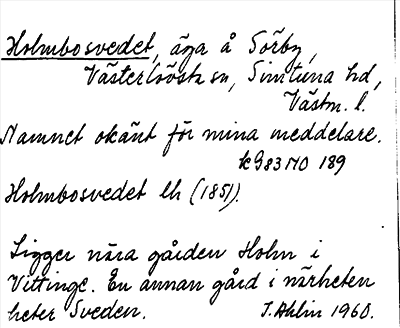 Holmbosvedet, äga å Sörby,
Västerlövsta sn, Simtuna hd,
Västm. l.
Namnet okänt för mina meddelare.
189
Holmbosvedet lh (1851).
Ligger nära gården Holm i
Vittinge. En annan gård i närheten
heter Sveden. J. Ahlin 1960.